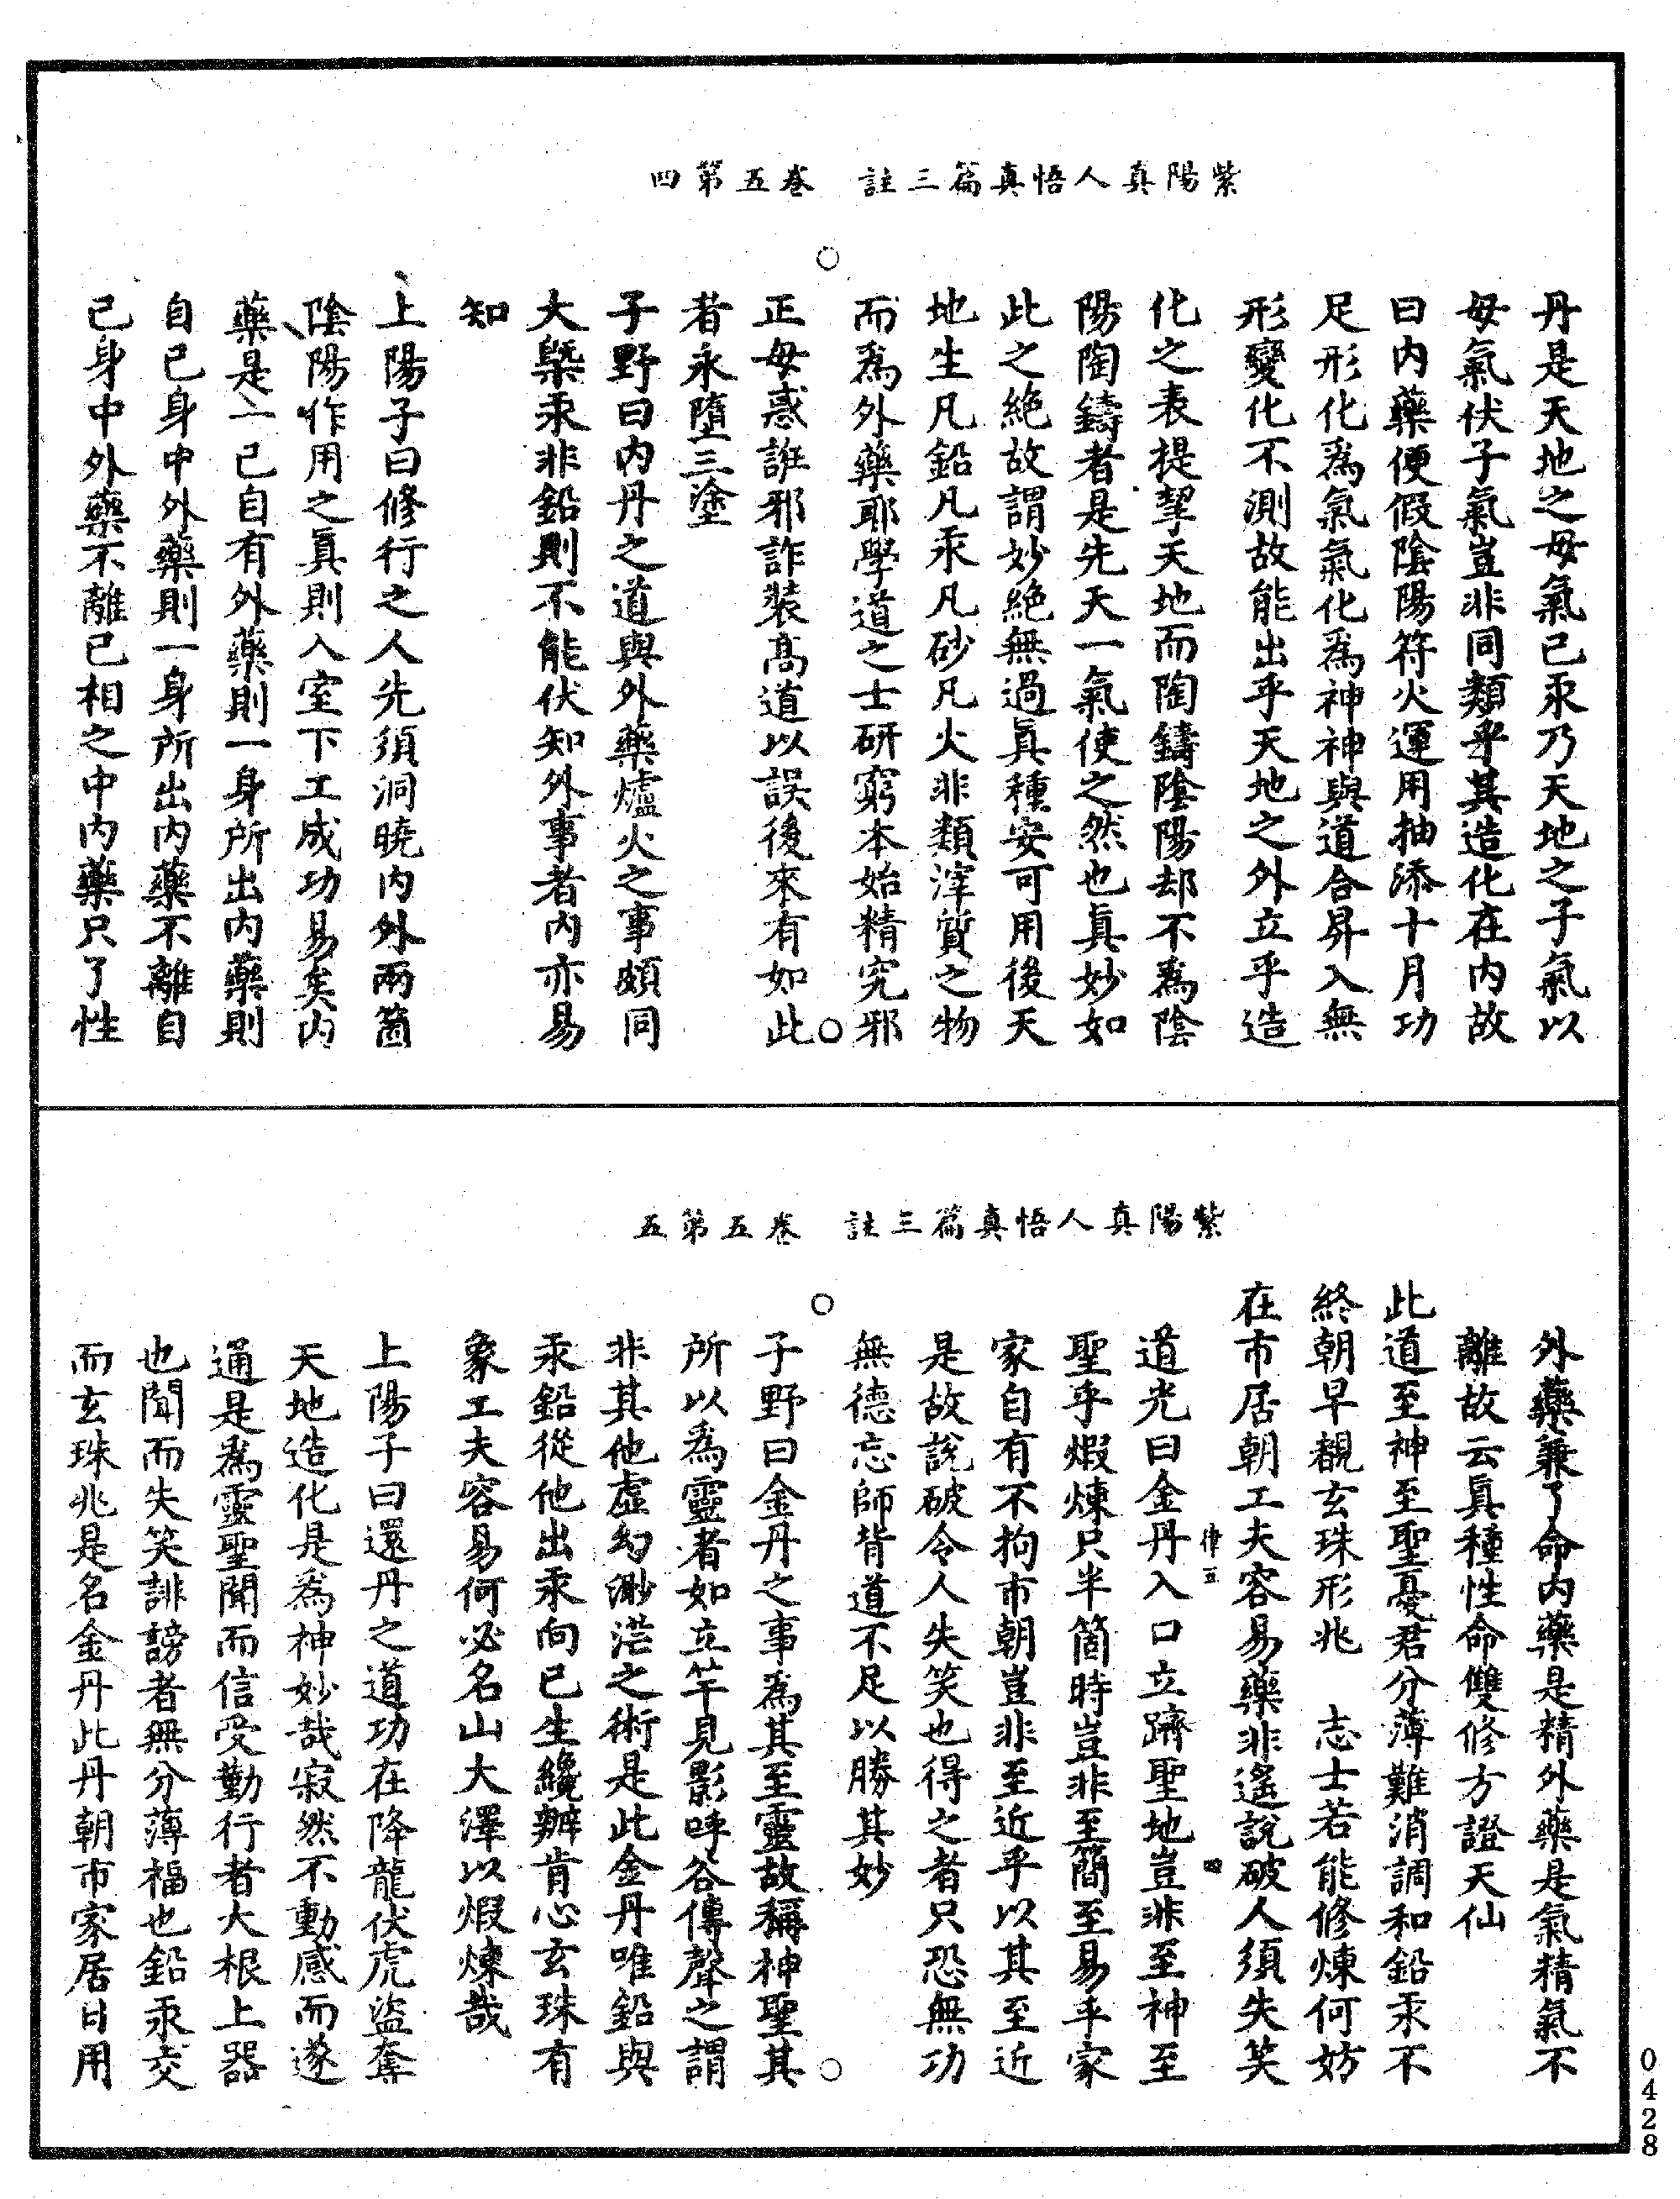 紫陽真人悟真篇三註　卷五第四
丹是天地之母氣已汞乃天地之子氣以
母氣伏子氣豈非同類乎其造化在內故
曰內藥便假陰陽符火運用抽添十月功
足形化為氣氣化為神神與道合昇入無
形變化不測故能出乎天地之外立乎造
化之表提挈天地而陶鑄陰陽却不為陰
陽陶鑄者是先天一氣使之然也眞妙如
此之絶故謂妙絶無過眞種安可用後天
地生凡鉛凡汞凡砂凡火非類滓質之物
而為外藥耶學道之士研窮本始精究邪
正毋惑誑邪詐裝高道以誤後來有如此
者永墮三塗
子野曰內丹之道與外藥爐火之事頗同
大槩汞非鉛則不能伏知外事者內亦易
知
上陽子曰修行之人先須洞曉內外兩箇
陰陽作用之眞則入室下工成功易矣內
藥是一己自有外藥則一身所出內藥則
自己身中外藥則一身所出內藥不離自
己身中外藥不離己相之中內藥只了性
紫陽真人悟真篇三註　卷五第五
外藥兼了命內藥是精外藥是氣精氣不
離故云眞種性命雙修方證天仙
此道至神至聖憂君分薄難消調和鉛汞不
終朝早覩玄珠形兆　志士若能修煉何妨
在市居朝工夫容易藥非遙說破人須失笑
律五　四
道光曰金丹入口立躋聖地豈非至神至
聖乎煆煉只半箇時豈非至簡至易乎家
家自有不拘市朝豈非至近乎以其至近
是故說破令人失笑也得之者只恐無功
無德忘師背道不足以勝其妙
子野曰金丹之事為其至靈故稱神聖其
所以為靈者如立竿見影呼谷傳聲之謂
非其他虛幻渺茫之術是此金丹唯鉛與
汞鉛從他出汞向已生纔辦肯心玄珠有
象工夫容易何必名山大澤以煆煉哉
上陽子曰還丹之道功在降龍伏虎盜奪
天地造化是為神妙哉寂然不動感而遂
通是為靈聖聞而信受勤行者大根上器
也聞而失笑誹謗者無分薄福也鉛汞交
而玄珠兆是名金丹此丹朝市家居日用
0428